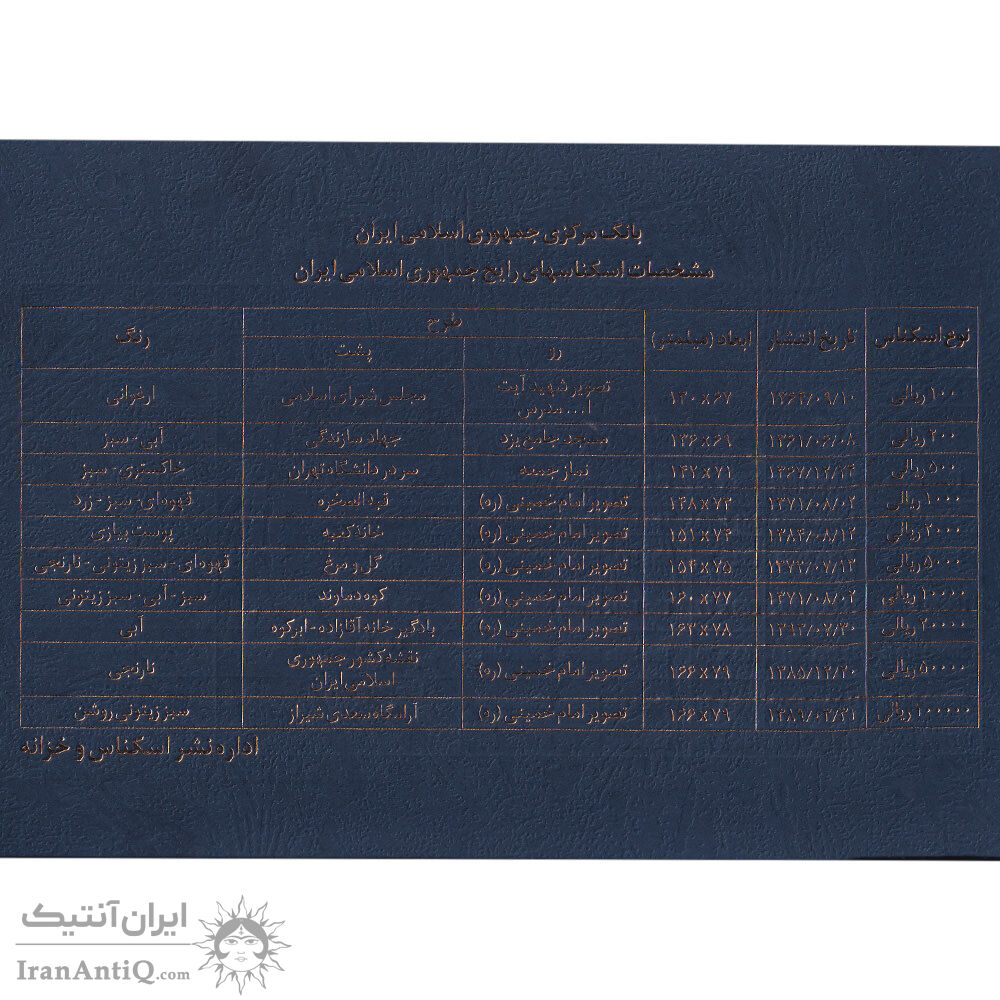 بانک مرکزی جمهوری اسلامی ایران
مشخصات اسکناسهای رایج جمهوری اسلامی ایران
نوع اسکناس تاریخ انتشار ابعاد (میلمتر) طرح رنگ
رو پشت
۱۰۰ ریالی ۱۳۶۴/۰۹/۱۰ ۱۳۰x۶۷ تصویر شهید آیت ا... مدرس مجلس شورای اسلامی ارغوانی
۲۰۰ ریالی ۱۳۶۱/۰۶/۰۸ ۱۳۶x۶۹ مسجد جامع یزد جهاد سازندگی آبی - سبز
۵۰۰ ریالی ۱۴۲x۷۱ نماز جمعه سر در دانشگاه تهران خاکستری - سبز
۱۰۰۰ ریالی ۱۳۷۱/۰۸/۰۲ ۱۴۸x۷۳ تصویر امام خمینی (ره) قبةالصخره قهوه‌ای - سبز - زرد
۲۰۰۰ ریالی ۱۳۸۴/۰۸/۱۲ ۱۵۱x۷۴ تصویر امام خمینی (ره) خانه کعبه پوست پیازی
۵۰۰۰ ریالی ۱۳۷۲/۰۷/۱۳ ۱۵۴x۷۵ تصویر امام خمینی (ره) گل و مرغ قهوه‌ای - سبز زیتونی - نارنجی
۱۰۰۰۰ ریالی ۱۳۷۱/۰۸/۰۲ ۱۶۰x۷۷ تصویر امام خمینی (ره) کوه دماوند سبز - آبی - سبز زیتونی
۲۰۰۰۰ ریالی ۱۳۹۳/۰۷/۳۰ ۱۶۳x۷۸ تصویر امام خمینی (ره) بادگیر خانه آقازاده - ابرکوه آبی
۵۰۰۰۰ ریالی ۱۳۸۵/۱۲/۲۰ ۱۶۶x۷۹ تصویر امام خمینی (ره) نقشه کشور جمهوری اسلامی ایران نارنجی
۱۰۰۰۰۰ ریالی ۱۶۶x۷۹ تصویر امام خمینی (ره) آرامگاه سعدی شیراز سبز زیتونی روشن
اداره نشر اسکناس و خزانه
ایران آنتیک
IranAntiQ.com